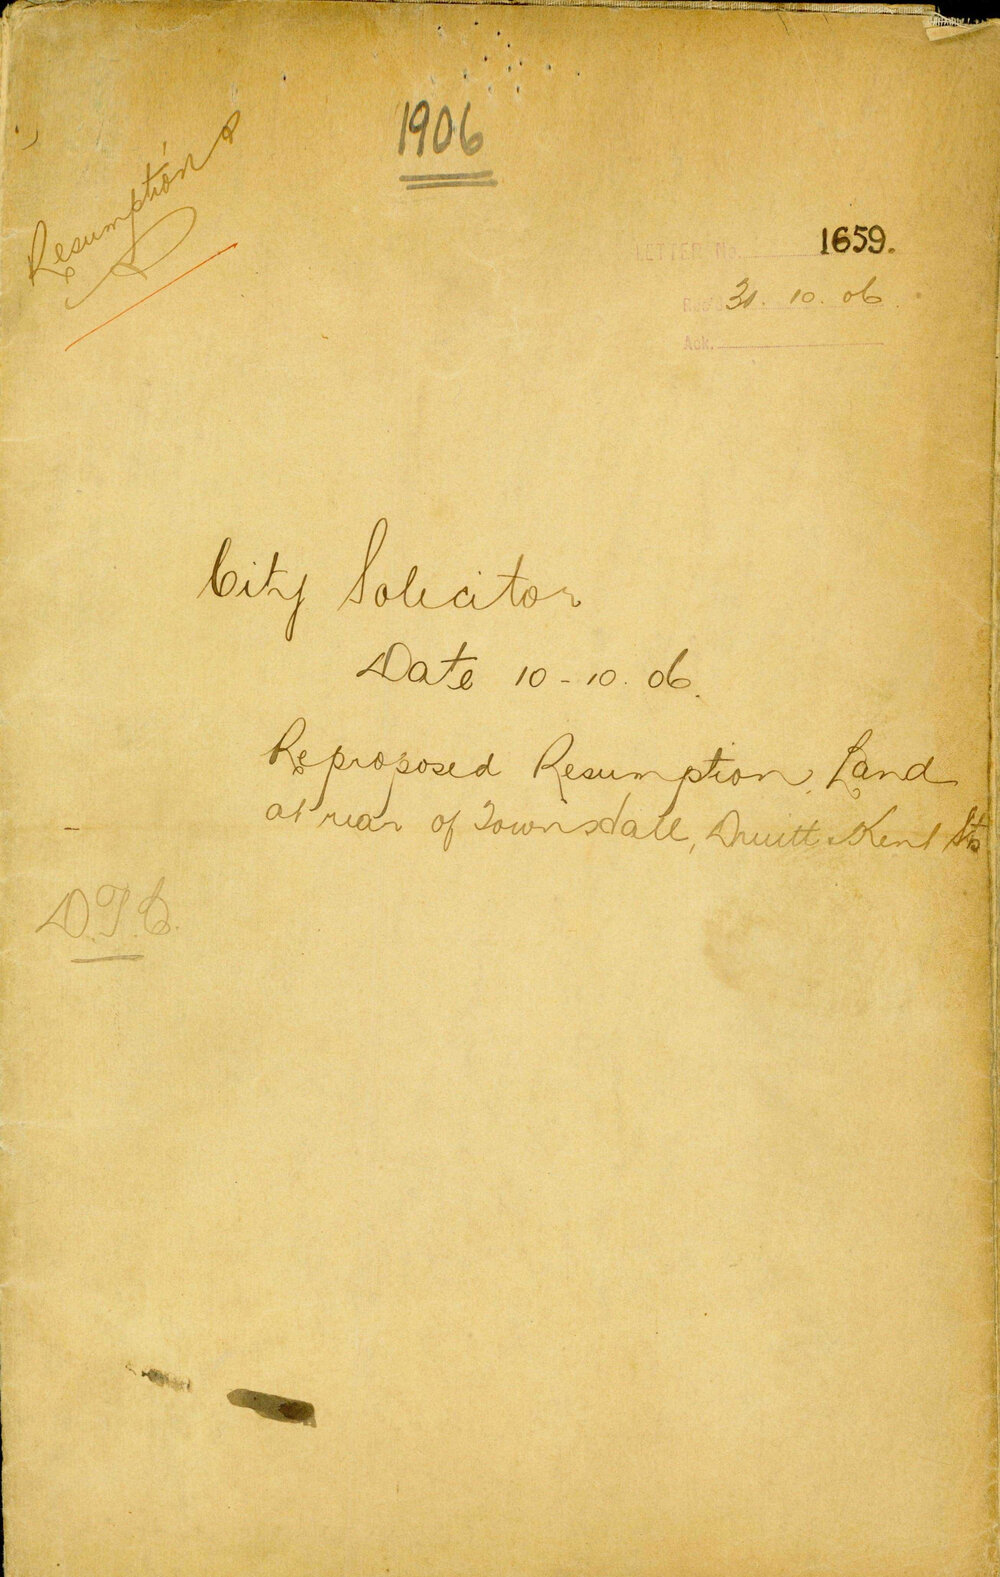 1906
Resumptions
LETTER No. 1659.
Rec'd 31. 10. 06
Ack.
City Solicitor
Date 10-10. 06.
Re proposed Resumption, Land
at rear of Townshall, Druitt & Kent Sts
D.T.C.